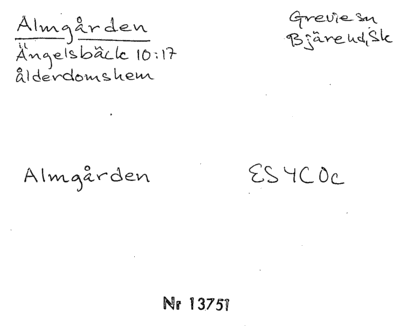 Almgården
Ängelsbäck 10:17
ålderdomshem
Grevie sn
Bjäre hd, Sk
Almgården
ES4C0c
Nr 13751